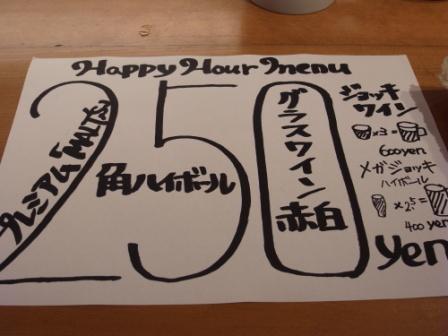 Happy Hour Menu
250
プレミアム「MALT'S」
角ハイボール
グラスワイン
赤白
ジョッキ
ワイン
×3=
600yen
メガジョッキ
ハイボール
×2.5=
400yen
yen